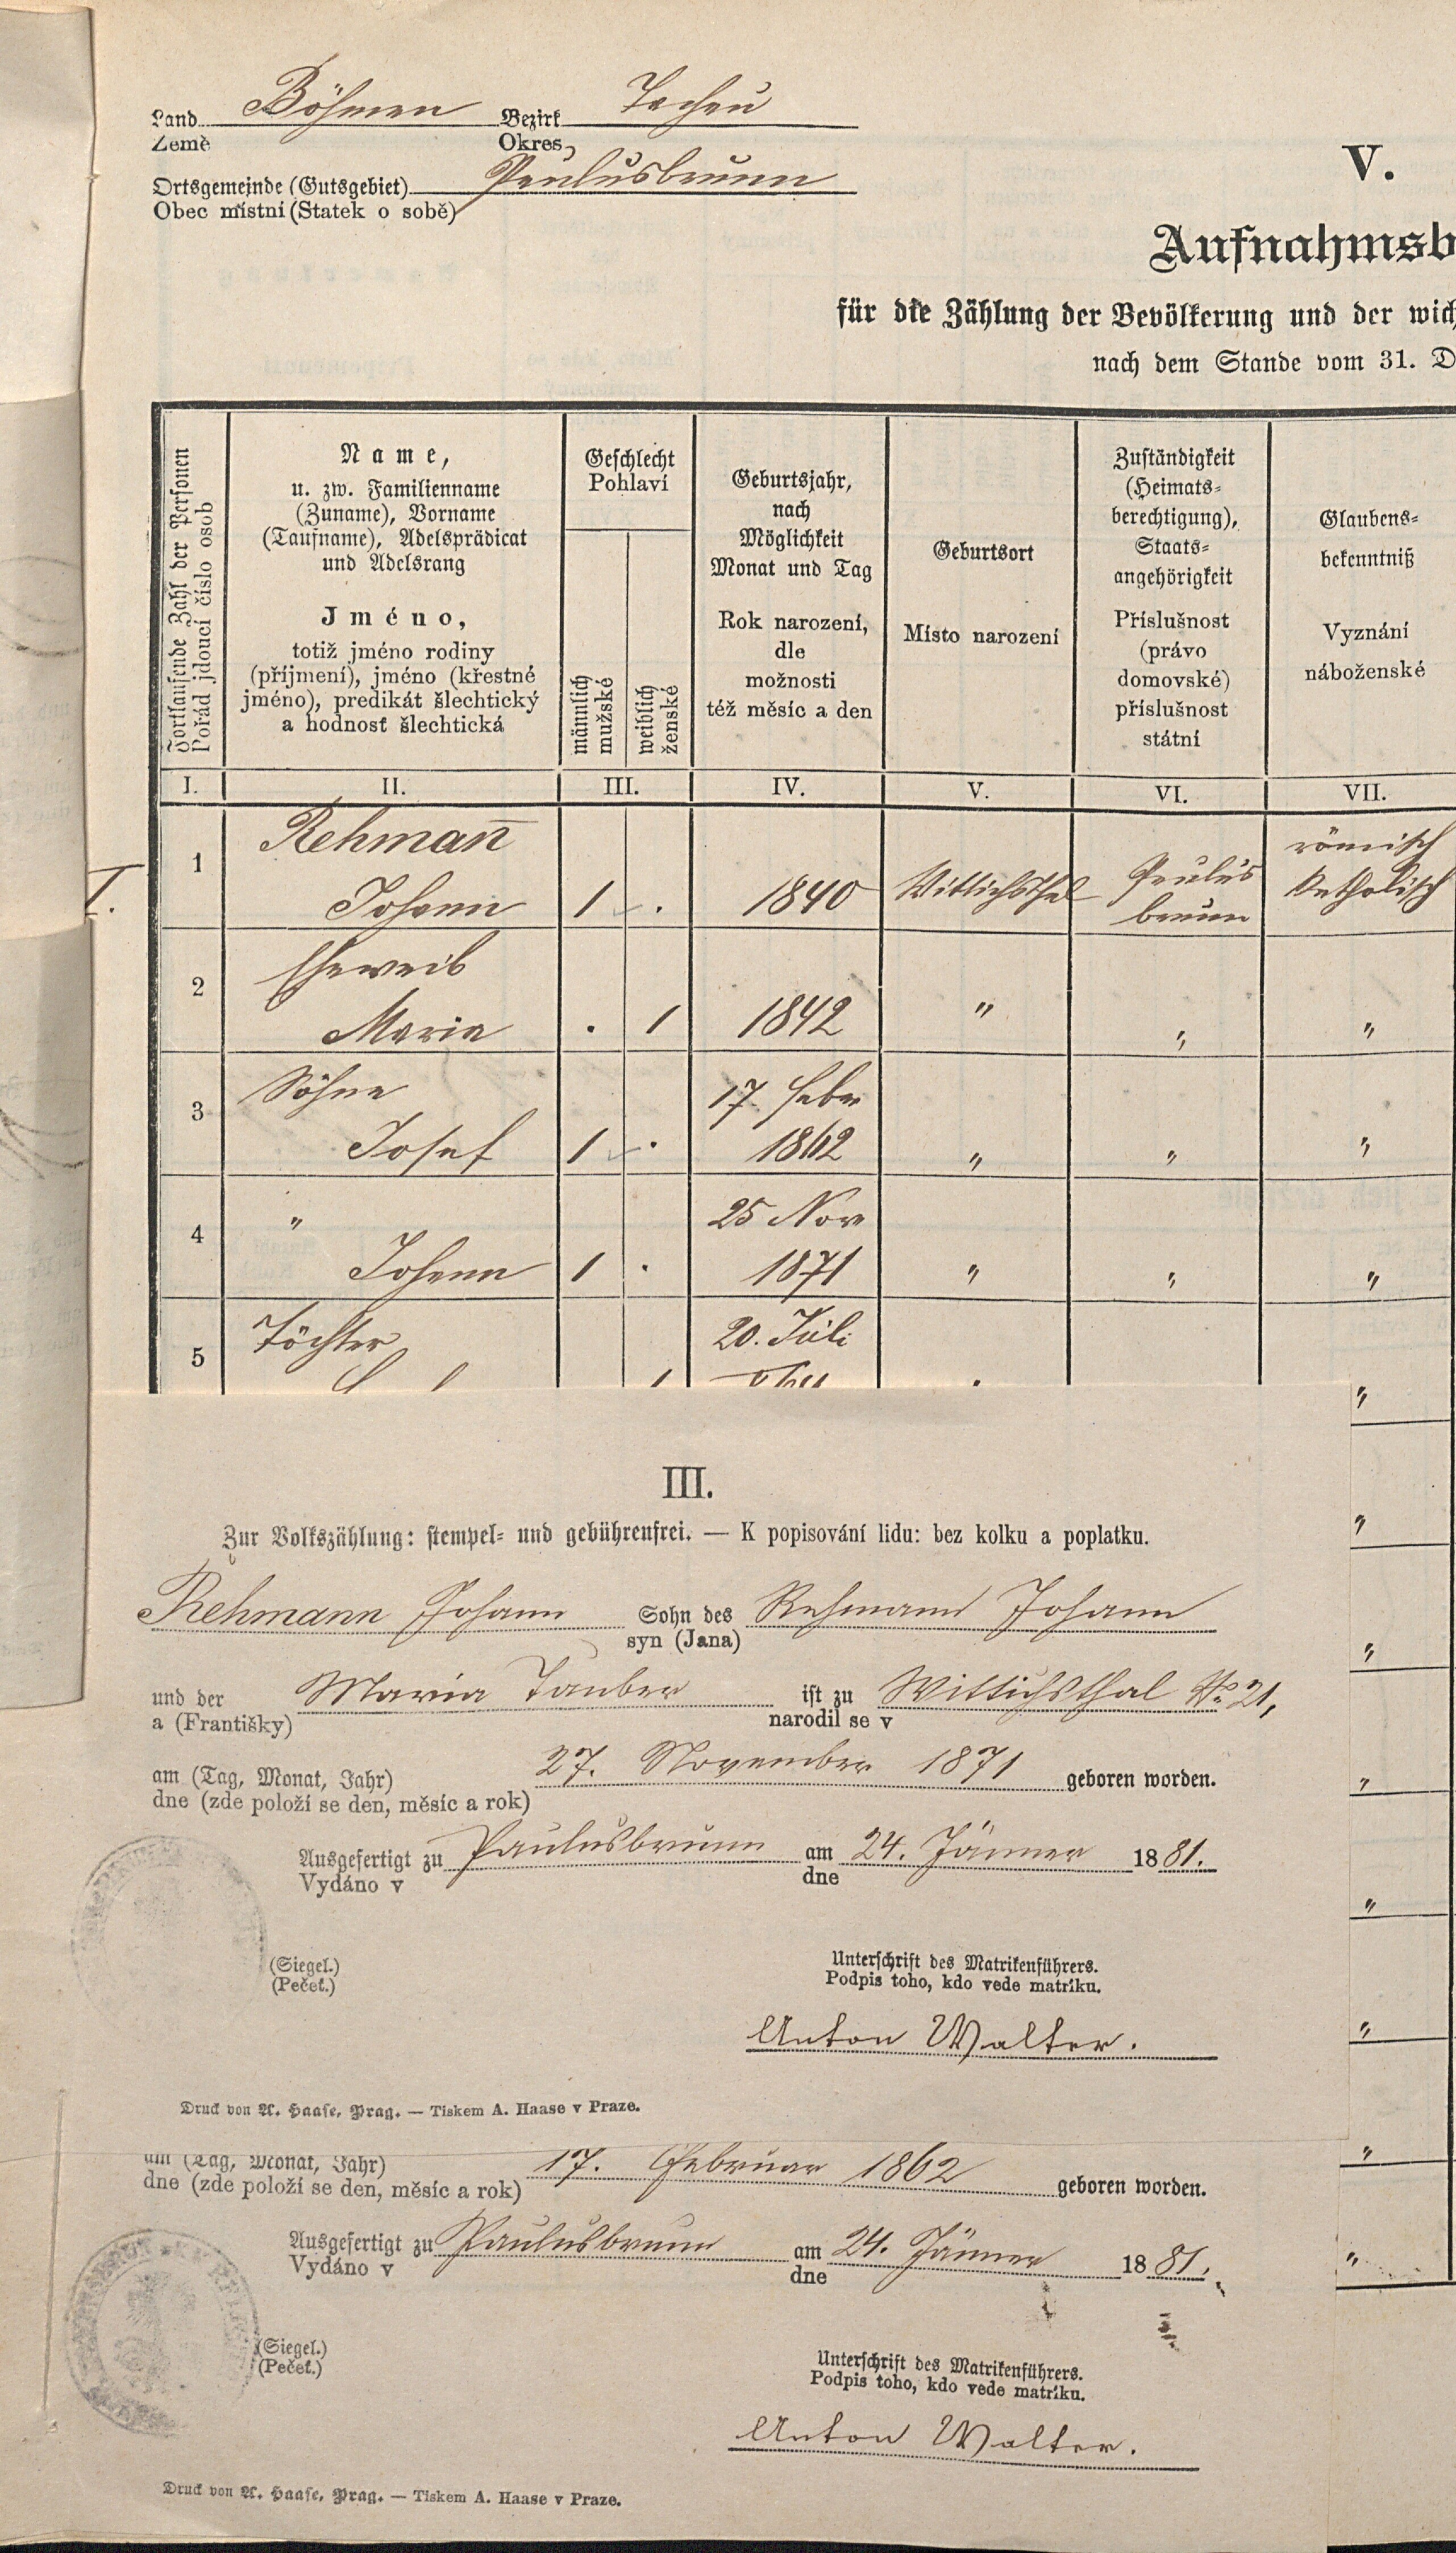 Land Böhmen Bezirk Tachau
Země Okres
Ortsgemeinde (Gutsgebiet) Paulusbrunn
Obec místní (Statek o sobě)
V.
Aufnahmsb
für die Zählung der Bevölkerung und der wich
nach dem Stande vom 31. D
Fortlaufende Zahl der Personen
Pořád jdoucí číslo osob
Name,
u. zw. Familienname
(Zuname), Vorname
(Taufname), Adelsprädicat
und Adelsrang
Jméno,
totiž jméno rodiny
(příjmení), jméno (křestné
jméno), predikát šlechtický
a hodnosť šlechtická
Geschlecht
Pohlaví
männlich
mužské
weiblich
ženské
Geburtsjahr,
nach
Möglichkeit
Monat und Tag
Rok narození,
dle
možnosti
též měsíc a den
Geburtsort
Místo narození
Zuständigkeit
(Heimats-
berechtigung),
Staats-
angehörigkeit
Příslušnost
(právo
domovské)
příslušnost
státní
Glaubens-
bekenntniß
Vyznání
náboženské
I. II. III. IV. V. VI. VII.
I.
1 Rehmann̅ römisch
Johann 1 . 1840 Wittichsthal Paulus
brunn katholisch
2 Eheweib
Maria . 1 1842 " " "
3 Söhne 17. Febr
Josef 1 . 1862 " " "
4 " 25 Nov
Johann 1 . 1871 " " "
5 Töchter 20. Juli
"
"
"
"
"
"
"
"
III.
Zur Volkszählung: stempel- und gebührenfrei. — K popisování lidu: bez kolku a poplatku.
Rehmann Johann Sohn des Rehmann Johann
syn (Jana)
und der Maria Tauber ist zu Wittichsthal No. 21,
a (Františky) narodil se v
am (Tag, Monat, Jahr) 27. November 1871 geboren worden.
dne (zde položí se den, měsíc a rok)
Ausgefertigt zu Paulusbrunn am 24. Jänner 1881.
Vydáno v dne
(Siegel.)
(Pečeť.)
Unterschrift des Matrikenführers.
Podpis toho, kdo vede matriku.
Anton Walter.
Druck von A. Haase, Prag. — Tiskem A. Haase v Praze.
am (Tag, Monat, Jahr) 17. Februar 1862 geboren worden.
dne (zde položí se den, měsíc a rok)
Ausgefertigt zu Paulusbrunn am 24. Jänner 1881.
Vydáno v dne
(Siegel.)
(Pečeť.)
Unterschrift des Matrikenführers.
Podpis toho, kdo vede matriku.
Anton Walter.
Druck von A. Haase, Prag. — Tiskem A. Haase v Praze.